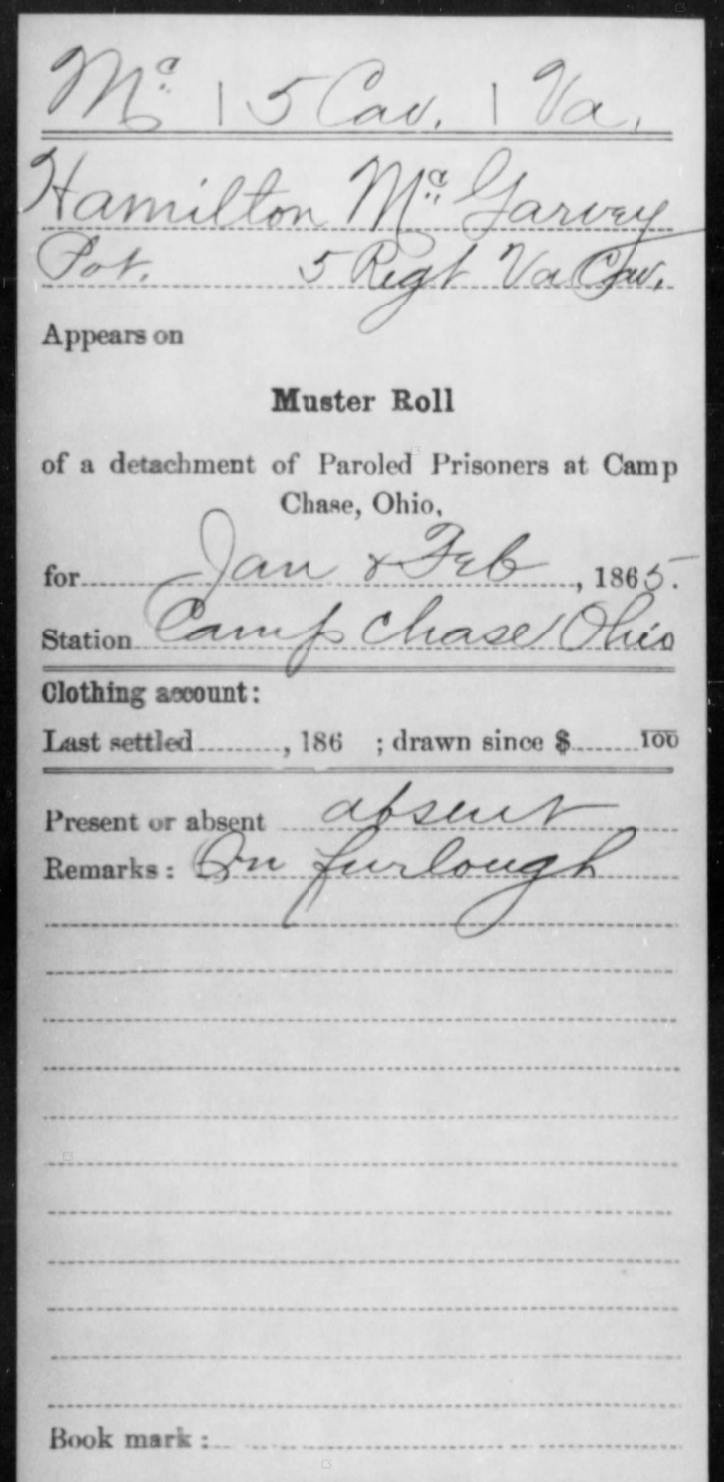 Mc | 5 Cav. | Va.
Hamilton Mc Garvey
Pvt. 5 Regt Va Cav.
Appears on
Muster Roll
of a detachment of Paroled Prisoners at Camp
Chase, Ohio,
for Jan & Feb, 1865.
Station Camp Chase Ohio
Clothing account:
Last settled, 186 ; drawn since $ 100
Present or absent absent
Remarks: On furlough
Book mark: